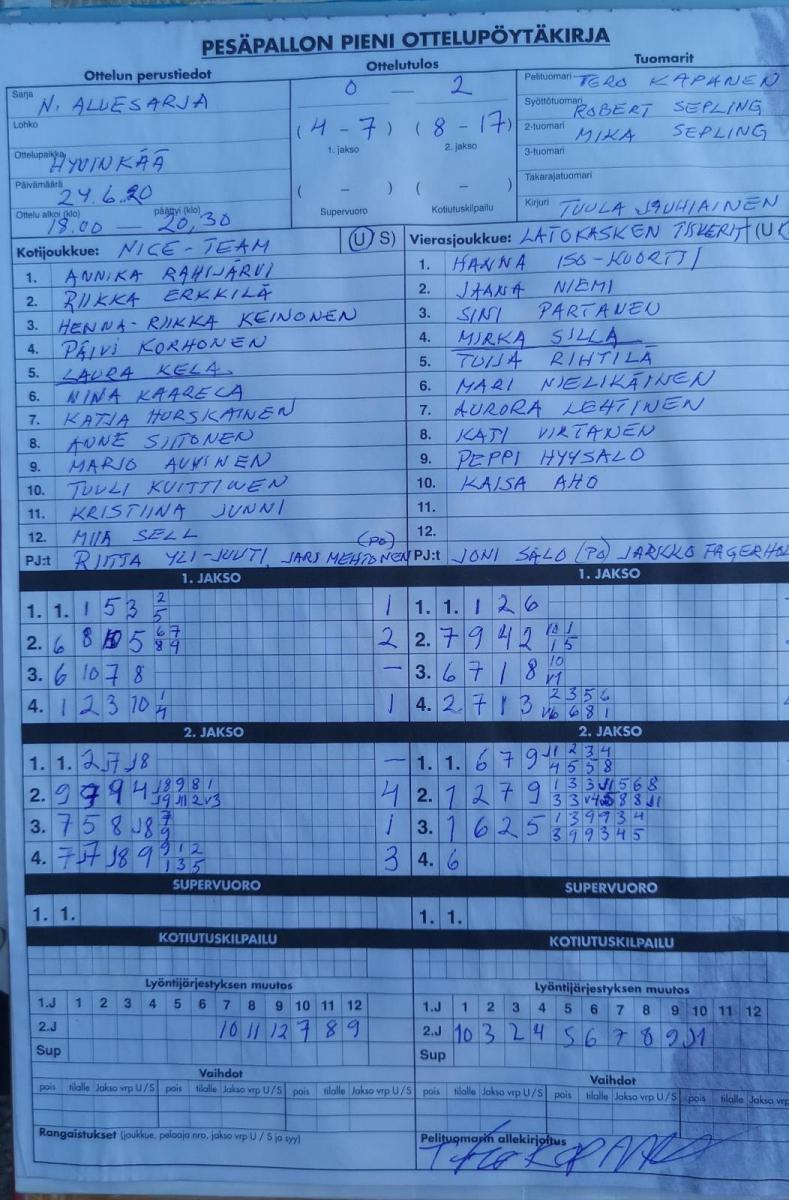 PESÄPALLON PIENI OTTELUPÖYTÄKIRJA
Ottelun perustiedot
Ottelutulos
Tuomarit
Sarja N. ALUESARJA
0 — 2
Pelituomari TERO KAPANEN
Lohko
Syöttötuomari ROBERT SEPLING
( 4 - 7 ) ( 8 - 17 )
2-tuomari MIKA SEPLING
1. jakso 2. jakso
Ottelupaikka HYVINKÄÄ
3-tuomari
Päivämäärä 24.6.20
( - ) ( - )
Takarajatuomari
Ottelu alkoi (klo) päättyi (klo)
18.00 — 20,30
Supervuoro Kotiutuskilpailu
Kirjuri TUULA JAUHIAINEN
Kotijoukkue: NICE-TEAM (U S)
1. ANNIKA RAHIJÄRVI
2. RIIKKA ERKKILÄ
3. HENNA-RIIKKA KEINONEN
4. PÄIVI KORHONEN
5. LAURA KELA
6. NINA KAARELA
7. KATJA HURSKAINEN
8. ANNE SIITONEN
9. MARJO AUVINEN
10. TUULI KUITTINEN
11. KRISTIINA JUNNI
12. MIIA SELL
PJ:t RIITTA YLI-JUUTI, JARI MEHTONEN (PO)
Vierasjoukkue: LATOKASKEN TISKERIT (U
1. HANNA ISO-KUORTTI
2. JAANA NIEMI
3. SINI PARTANEN
4. MIRKA SILLA
5. TUIJA RIHTILÄ
6. MARI NIELIKÄINEN
7. AURORA LEHTINEN
8. KATI VIRTANEN
9. PEPPI HYYSALO
10. KAISA AHO
11.
12.
PJ:t JONI SALO (PO) JARKKO FAGERHOL
1. JAKSO
1. 1. 1 5 3 2 5 1
2. 6 8 10 5 6 7 8 9 2
3. 6 10 7 8 —
4. 1 2 3 10 1 4 1
1. JAKSO
1. 1. 1 2 6
2. 7 9 4 2 10 1 1 5
3. 6 7 1 8 10 V1
4. 2 7 1 3 2 3 5 6 V6 6 8 1
2. JAKSO
1. 1. 2 J7 J8 —
2. 9 9 9 4 J8 9 8 1 J9 J11 2 V3 4
3. 7 5 8 J8 7 9 1
4. 7 J7 J8 9 9 1 2 1 3 5 3
2. JAKSO
1. 1. 6 7 9 J1 2 3 4 4 5 5 8
2. 1 2 7 9 1 3 3 J1 5 6 8 3 3 V4 5 8 8 J1
3. 1 6 2 5 1 3 9 9 3 4 3 9 9 3 4 5
4. 6
SUPERVUORO
1. 1.
SUPERVUORO
1. 1.
KOTIUTUSKILPAILU
KOTIUTUSKILPAILU
Lyöntijärjestyksen muutos
1.J 1 2 3 4 5 6 7 8 9 10 11 12
2.J 10 11 12 7 8 9
Sup
Lyöntijärjestyksen muutos
1.J 1 2 3 4 5 6 7 8 9 10 11 12
2.J 10 3 2 4 5 6 7 8 9 J1
Sup
Vaihdot
pois tilalle Jakso vrp U / S pois tilalle Jakso vrp U / S pois tilalle Jakso vrp U / S
Vaihdot
pois tilalle Jakso vrp U / S pois tilalle Jakso vrp U / S pois tilalle Jakso vrp
Rangaistukset (joukkue, pelaaja nro, jakso vrp U / S ja syy)
Pelituomarin allekirjoitus